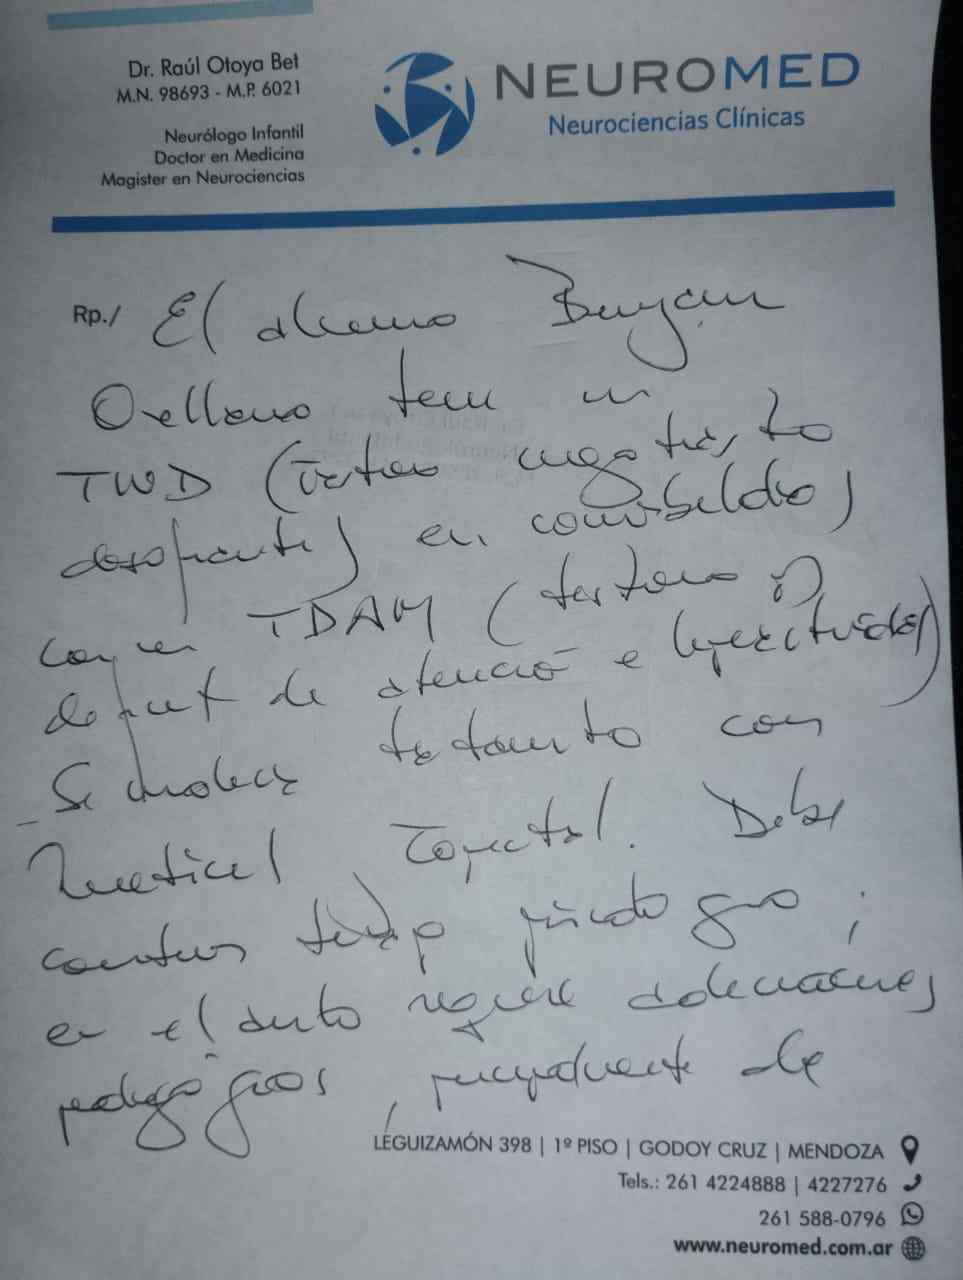 Dr. Raúl Otoya Bet
M.N. 98693 - M.P. 6021
Neurólogo Infantil
Doctor en Medicina
Magister en Neurociencias
NEUROMED
Neurociencias Clínicas
Rp./ El alumno
Orellano tiene un
negativista
desafiante) en comorbilidad
con un TDAH (trastorno x
deficit de atención e hiperactividad)
Se tratamiento con
Debe
continuar terapia psicológica;
en el requiere adecuaciones
pedagógicas, principalmente de
LEGUIZAMÓN 398 | 1º PISO | GODOY CRUZ | MENDOZA
Tels.: 261 4224888 | 4227276
261 588-0796
www.neuromed.com.ar